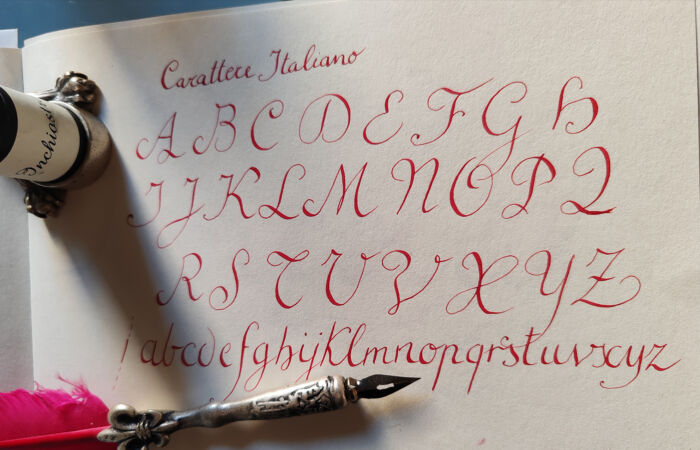 Carattere Italiano
A B C D E F G H
I J K L M N O P Q
R S T U V X Y Z
abcdefghijklmnopqrstuvxyz
Inchios